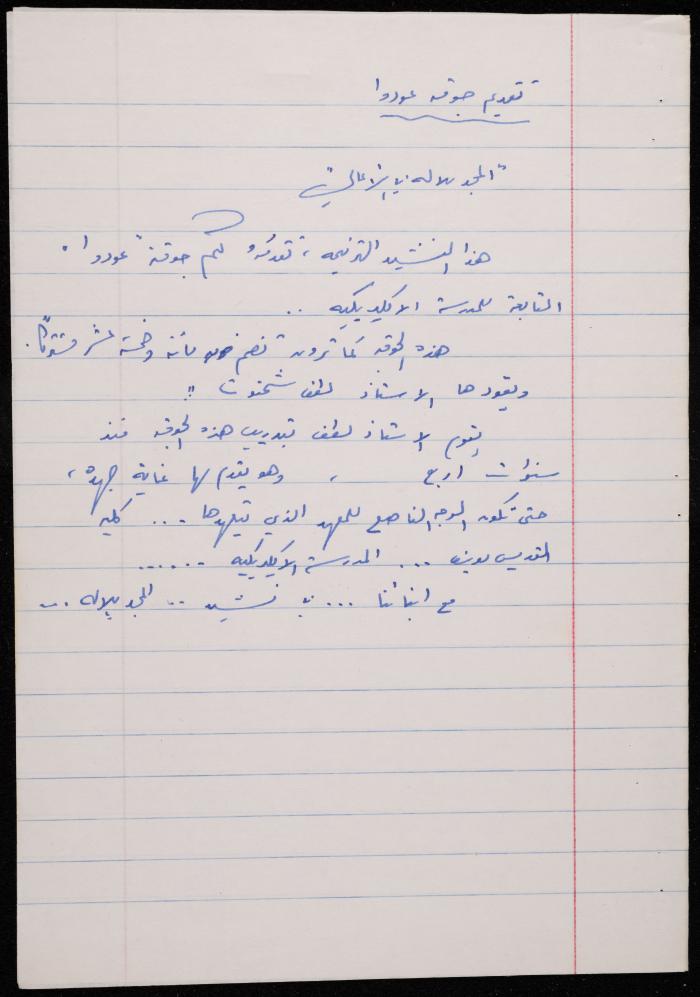 تقديم جوقه عودوا
"المجد لله في الاعالي"
هذا النشيد الترنيمه، تقدمه لكم جوقة "عودوا".
التابعة للمدرسة الاكليريكيه ..
هذه الجوقه كما ترون تضم مائة وخمسة عشر
ويقودها الاستاذ لطف شحتوت !!
يقوم الاستاذ لطف بتدريب هذه الجوقه منذ
سنوات اربع ، وهو يقدم لها غاية جهده،
حتى تكون الوجه الناصع للمعهد الذي يتعهدها ... كليه
القديس يوسف ... المدرسة الاكليريكيه ......
مع ابنائنا ... في نشيد .. المجد لله ...